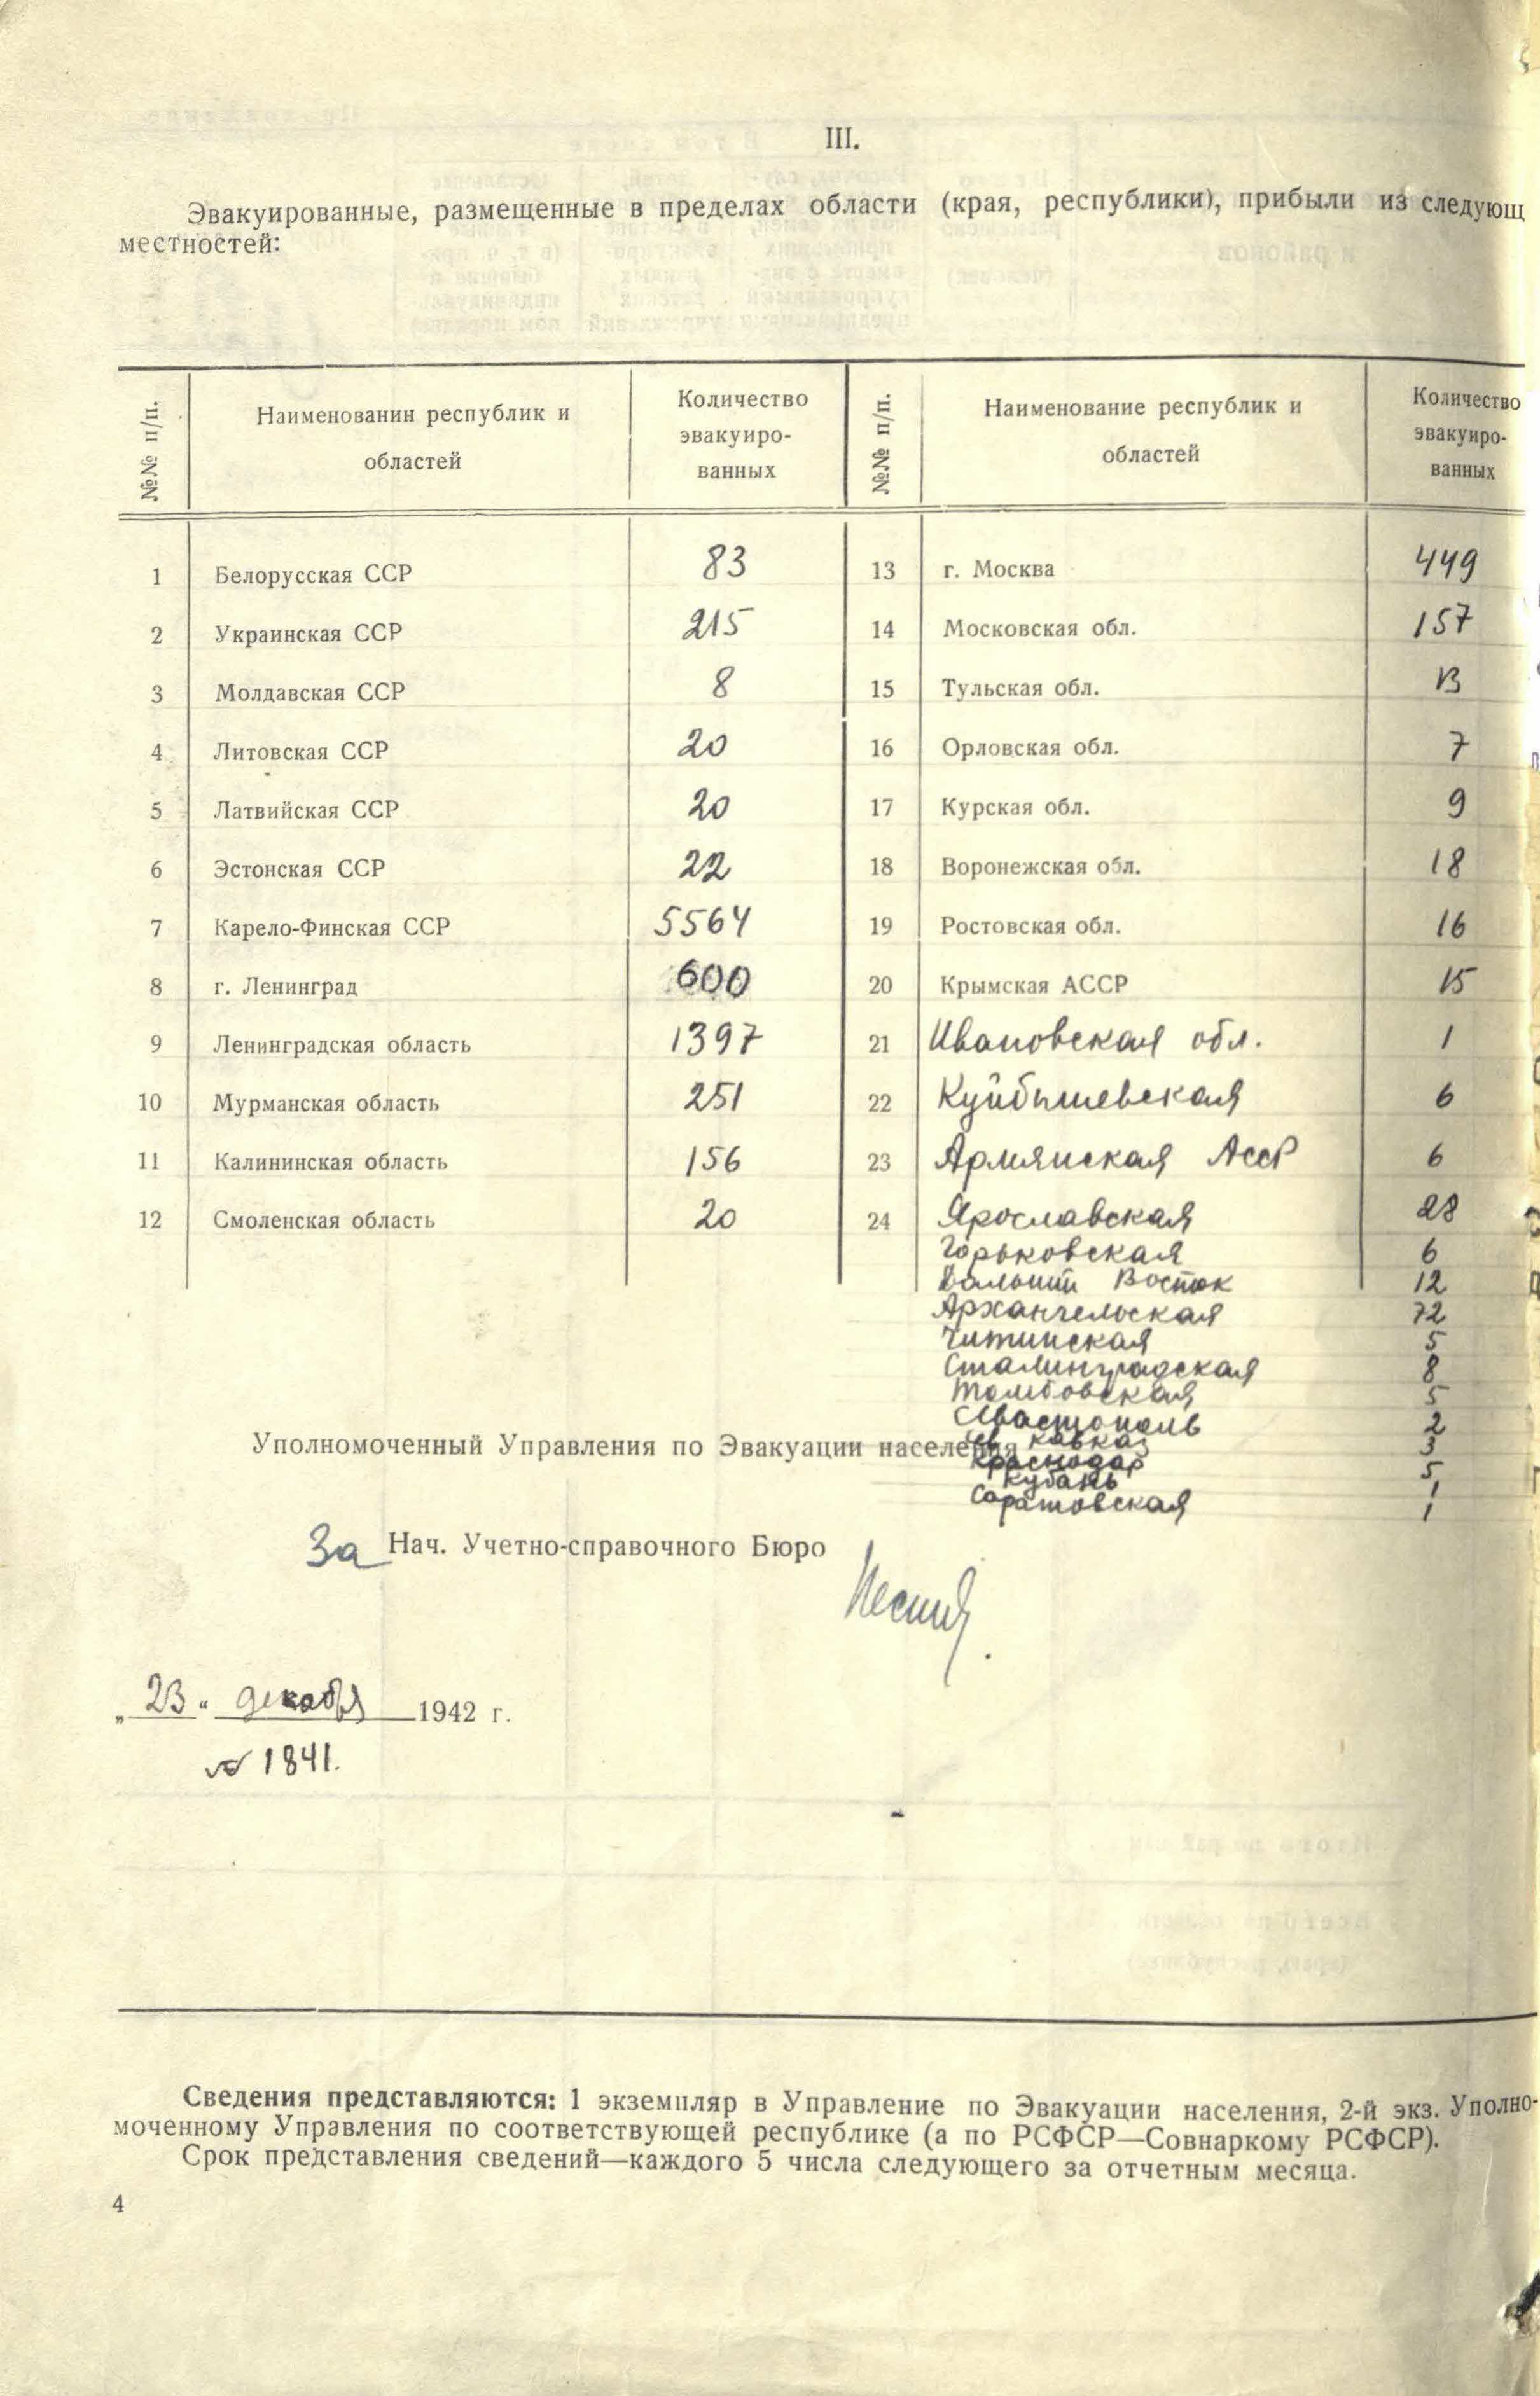 III.
Эвакуированные, размещенные в пределах области (края, республики), прибыли из следующ
местностей:
№№ п/п. Наименованин республик и областей Количество эвакуиро-ванных №№ п/п. Наименование республик и областей Количество эвакуиро-ванных
1 Белорусская ССР 83 13 г. Москва 449
2 Украинская ССР 215 14 Московская обл. 157
3 Молдавская ССР 8 15 Тульская обл. 13
4 Литовская ССР 20 16 Орловская обл. 7
5 Латвийская ССР 20 17 Курская обл. 9
6 Эстонская ССР 22 18 Воронежская обл. 18
7 Карело-Финская ССР 5564 19 Ростовская обл. 16
8 г. Ленинград 600 20 Крымская АССР 15
9 Ленинградская область 1397 21 Ивановская обл. 1
10 Мурманская область 251 22 Куйбышевская 6
11 Калининская область 156 23 Армянская АссР 6
12 Смоленская область 20 24 Ярославская 28
Горьковская 6
Дальний Восток 12
Архангельская 72
Читинская 5
Сталинградская 8
Тамбовская 5
Севастополь 2
Уполномоченный Управления по Эвакуации населения
Сев Кавказ 3
Краснодар 5
Кубань 1
Саратовская 1
За Нач. Учетно-справочного Бюро
„23“ декабря 1942 г.
№ 1841.
Сведения представляются: 1 экземпляр в Управление по Эвакуации населения, 2-й экз. Уполно-
моченному Управления по соответствующей республике (а по РСФСР—Совнаркому РСФСР).
Срок представления сведений—каждого 5 числа следующего за отчетным месяца.
4